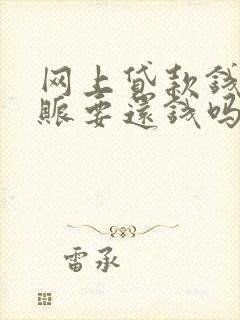 网上贷款钱
账要還钱吗
雷承